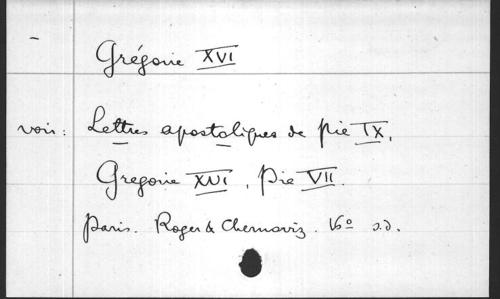 Grégoire XVI
voir: Lettres apostoliques de Pie IX,
Gregoire XVI, Pie VII.
Paris. Roger & Chernoviz. 8° s.d.